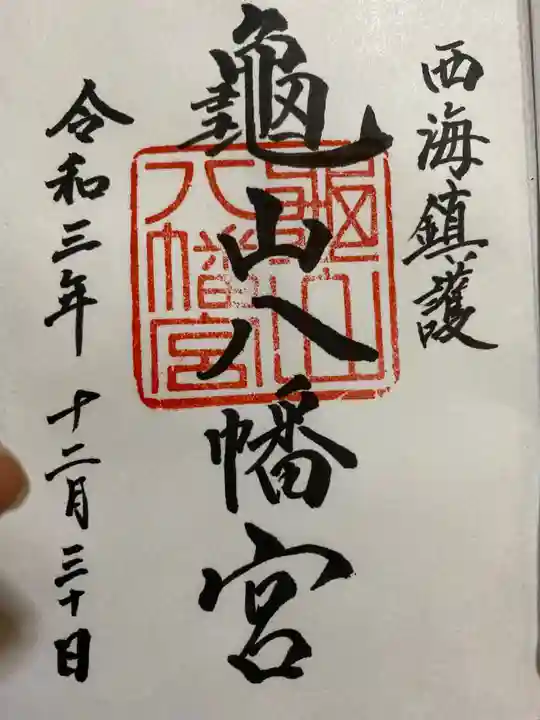 西海鎮護
龜山八幡宮
龜山八幡宮
令和三年 十二月三十日